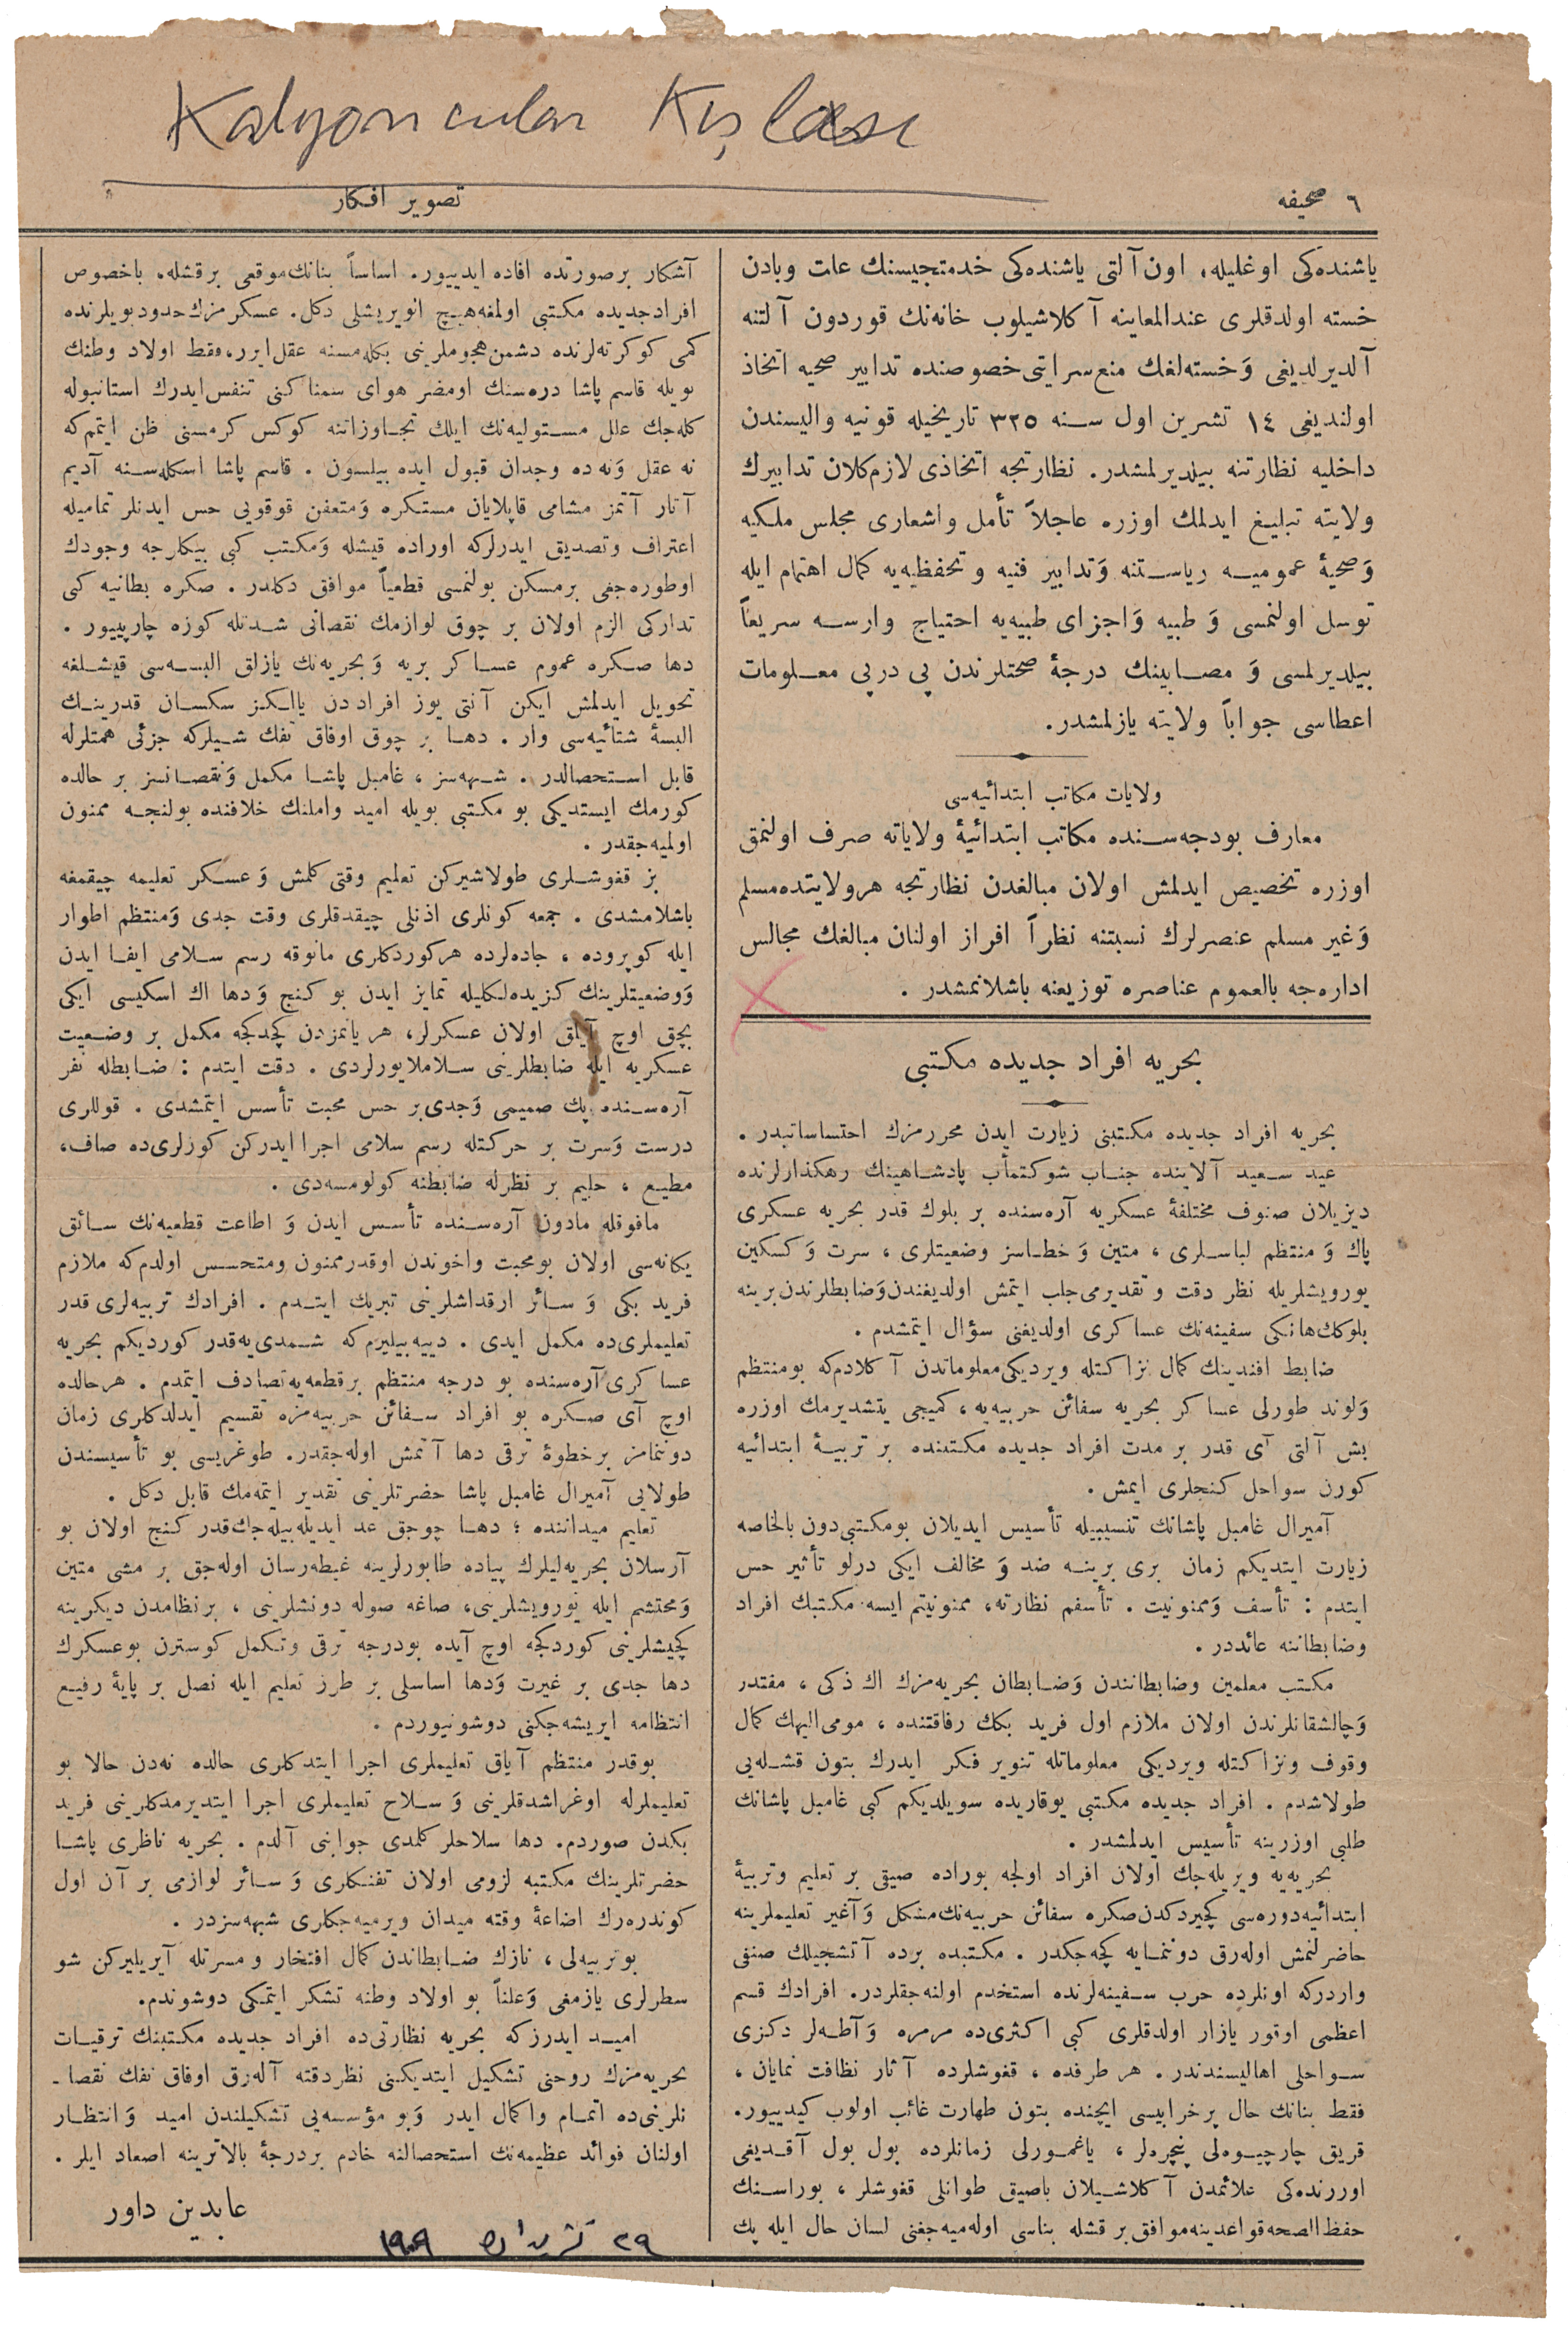 Kalyoncular Kışlası
٦ صحیفه
تصویر افكار
یاشنده‌كی اوغلیله، اون آلتی یاشنده‌كی خدمتجیسنك علت وبادن
خسته اولدقلری عندالمعاینه آكلاشیلوب خانه‌نك قوردون آلتنه
آلدیرلدیغی وَ خسته‌لغك منع سرایتی خصوصنده تدابیر صحیه اتخاذ
اولندیغی ١٤ تشرین اول سنه ٣٢٥ تاریخیله قونیه والیسندن
داخلیه نظارتنه بیلدیرلمشدر. نظارتجه اتخاذی لازم كلان تدابیرك
ولایته تبلیغ ایدلمك اوزره عاجلاً تأمل واشعاری مجلس ملكیه
وَ صحیهٔ عمومیه ریاستنه وَ تدابیر فنیه و تحفظیه‌یه كمال اهتمام ایله
توسل اولنمسی وَ طبیه وَ اجزای طبیه‌یه احتیاج وارسه سریعاً
بیلدیرلمسی وَ مصابینك درجهٔ صحتلرندن پی درپی معلومات
اعطاسی جواباً ولایته یازلمشدر.
ولایات مكاتب ابتدائیه‌سی
معارف بودجه‌سنده مكاتب ابتدائیهٔ ولایاته صرف اولنمق
اوزره تخصیص ایدلمش اولان مبالغدن نظارتجه هر ولایتده مسلم
وَ غیر مسلم عنصرلرك نسبتنه نظراً افراز اولنان مبالغك مجالس
اداره‌جه بالعموم عناصره توزیعنه باشلانمشدر .
بحریه افراد جدیده مكتبی
بحریه افراد جدیده مكتبنی زیارت ایدن محررمزك احتساساتیدر .
عید سعید آلاینده جناب شوكتمأب پادشاهینك رهكذارلرنده
دیزیلان صنوف مختلفهٔ عسكریه آره‌سنده بر بلوك قدر بحریه عسكری
پاك وَ منتظم لباسلری ، متین وَ خطاسز وضعیتلری ، سرت وَ كسكین
یورویشلریله نظر دقت و تقدیرمی جلب ایتمش اولدیغندن وَ ضابطلرندن برینه
بلوكك هانكی سفینه‌نك عساكری اولدیغنی سؤال ایتمشدم .
ضابط افندینك كمال نزاكتله ویردیكی معلوماتدن آكلادم‌كه بو منتظم
وَ لوند طورلی عساكر بحریه سفائن حربیه‌یه ، كمیجی یتشدیرمك اوزره
بش آلتی آی قدر بر مدت افراد جدیده مكتبنده بر تربیهٔ ابتدائیه
كورن سواحل كنجلری ایمش .
آمیرال غامبل پاشانك تنسیبیله تأسیس ایدیلان بو مكتبی دون بالخاصه
زیارت ایتدیكم زمان بری برینه ضد وَ مخالف ایكی درلو تأثیر حس
ایتدم : تأسف وَ ممنونیت . تأسفم نظارته، ممنونیتم ایسه مكتبك افراد
وضابطاننه عائددر .
مكتب معلمین وضابطانندن وَ ضابطان بحریه‌مزك اك ذكی ، مقتدر
وَ چالشقانلرندن اولان ملازم اول فرید بكك رفاقتنده ، مومی الیهك كمال
وقوف ونزاكتله ویردیكی معلوماتله تنویر فكر ایدرك بتون قشله‌یی
طولاشدم . افراد جدیده مكتبی یوقاریده سویلدیكم كبی غامبل پاشانك
طلبی اوزرینه تأسیس ایدلمشدر .
بحریه‌یه ویریله‌جك اولان افراد اولجه بوراده صیقی بر تعلیم وتربیهٔ
ابتدائیه دوره‌سی كچیردكدن صكره سفائن حربیه‌نك مشكل وَ آغیر تعلیملرینه
حاضرلنمش اوله‌رق دوننمایه كچه‌جكدر . مكتبده برده آتشجیلك صنفی
واردركه اونلرده حرب سفینه‌لرنده استخدم اولنه‌جقلردر. افرادك قسم
اعظمی اوقور یازار اولدقلری كبی اكثری‌ده مرمره وَ آطه‌لر دكزی
سواحلی اهالیسندندر . هر طرفده ، قغوشلرده آثار نظافت نمایان ،
فقط بنانك حال پر خرابیسی ایچنده بتون طهارت غائب اولوب كیدییور.
قریق چارچیوه‌لی پنچره‌لر ، یاغمورلی زمانلرده بول بول آقدیغی
اوررنده‌كی علائمدن آكلاشیلان باصیق طوانلی قغوشلر ، بوراسنك
حفظ الصحه قواعدینه موافق بر قشله بناسی اوله‌میه‌جغنی لسان حال ایله پك
آشكار بر صورتده افاده ایدییور. اساساً بنانك موقعی بر قشله، باخصوص
افراد جدیده مكتبی اولمغه هیچ الویریشلی دكل. عسكرمزك حدود بویلرنده
كمی كوكرته‌لرنده دشمن هجوملرینی بكله‌مسنه عقل ایرر، فقط اولاد وطنك
بویله قاسم پاشا دره‌سنك اومضر هوای سمناكنی تنفس ایدرك استانبوله
كله‌جك علل مستولیه‌نك ایلك تجاوزاتنه كوكس كرمسنی ظن ایتم‌كه
نه عقل وَ نه ده وجدان قبول ایده بیلسون . قاسم پاشا اسكله‌سنه آدیم
آتار آتمز مشامی قاپلایان مستكره وَ متعفن قوقویی حس ایدنلر تمامیله
اعتراف وتصدیق ایدرلركه اوراده قیشله وَ مكتب كبی بیكلرجه وجودك
اوطوره‌جغی بر مسكن بولنمسی قطعیاً موافق دكلدر . صكره بطانیه كبی
تداركی الزم اولان بر چوق لوازمك نقصانی شدتله كوزه چارپییور .
دها صكره عموم عساكر بریه وَ بحریه‌نك یازلق البسه‌سی قیشلغه
تحویل ایدلمش ایكن آلتی یوز افراددن یالكز سكسان قدرینك
البسهٔ شتائیه‌سی وار . دها بر چوق اوفاق تفك شیلركه جزئی همتلرله
قابل استحصالدر . شبهه‌سز ، غامبل پاشا مكمل وَ نقصانسز بر حالده
كورمك ایستدیكی بو مكتبی بویله امید واملنك خلافنده بولنجه ممنون
اولمیه‌جقدر .
بز قغوشلری طولاشیركن تعلیم وقتی كلمش وَ عسكر تعلیمه چیقمغه
باشلامشدی . جمعه كونلری اذنلی چیقدقلری وقت جدی وَ منتظم اطوار
ایله كوپروده ، جاده‌لرده هر كوردكلری مافوقه رسم سلامی ایفا ایدن
وَ وضعیتلرینك كزیده‌لكلیله تمایز ایدن بو كنج وَ دها اك اسكیسی ایكی
بچق اوچ آیلق اولان عسكرلر، هر یانمزدن كچدكجه مكمل بر وضعیت
عسكریه ایله ضابطلرینی سلاملایورلردی . دقت ایتدم : ضابطله نفر
آره‌سنده پك صمیمی وَ جدی بر حس محبت تأسس ایتمشدی . قوللری
درست وَ سرت بر حركتله رسم سلامی اجرا ایدركن كوزلری‌ده صاف،
مطیع ، حلیم بر نظرله ضابطنه كولومسه‌دی .
مافوقله مادون آره‌سنده تأسس ایدن وَ اطاعت قطعیه‌نك سائق
یكانه‌سی اولان بو محبت واخوتدن اوقدر ممنون ومتحسس اولدم‌كه ملازم
فرید بكی وَ سائر ارقداشلرینی تبریك ایتدم . افرادك تربیه‌لری قدر
تعلیملری‌ده مكمل ایدی . دییه بیلیرم‌كه شمدی‌یه قدر كوردیكم بحریه
عساكری آره‌سنده بو درجه منتظم بر قطعه‌یه تصادف ایتمدم . هر حالده
اوچ آی صكره بو افراد سفائن حربیه‌مزه تقسیم ایدلدكلری زمان
دوننمامز بر خطوهٔ ترقی دها آتمش اوله‌جقدر. طوغریسی بو تأسیسندن
طولایی آمیرال غامبل پاشا حضرتلرینی تقدیر ایتمه‌مك قابل دكل .
تعلیم میداننده ؛ دها چوجق عد ایدیله‌بیله‌جك قدر كنج اولان بو
آرسلان بحریه‌لیلرك پیاده طابورلرینه غبطه‌رسان اوله‌جق بر مشی متین
وَ محتشم ایله یورویشلرینی، صاغه صوله دونشلرینی ، بر نظامدن دیكرینه
كچیشلرینی كوردكجه اوچ آیده بودرجه ترقی وتكمل كوسترن بو عسكرك
دها جدی بر غیرت وَ دها اساسلی بر طرز تعلیم ایله نصل بر پایهٔ رفیع
انتظامه ایریشه‌جكنی دوشونیوردم .
بوقدر منتظم آیاق تعلیملری اجرا ایتدكلری حالده نه‌دن حالا بو
تعلیملرله اوغراشدقلرینی وَ سلاح تعلیملری اجرا ایتدیرمدكلرینی فرید
بكدن صوردم. دها سلاحلر كلمدی جوابنی آلدم . بحریه ناظری پاشا
حضرتلرینك مكتبه لزومی اولان تفنكلری وَ سائر لوازمی بر آن اول
كوندره‌رك اضاعهٔ وقته میدان ویرمیه‌جكلری شبهه‌سزدر .
بو تربیه‌لی ، نازك ضابطاندن كمال افتخار و مسرتله آیریلیركن شو
سطرلری یازمغی وَ علناً بو اولاد وطنه تشكر ایتمكی دوشوندم.
امید ایدرزكه بحریه نظارتی‌ده افراد جدیده مكتبنك ترقیات
بحریه‌مزك روحنی تشكیل ایتدیكنی نظر دقته آله‌رق اوفاق تفك نقصا -
نلرینی‌ده اتمام واكمال ایدر وَ بو مؤسسه‌یی تشكیلندن امید وَ انتظار
اولنان فوائد عظیمه‌نك استحصالنه خادم بر درجهٔ بالاترینه اصعاد ایلر .
عابدین داور
٢٩ تشرین اول ١٩٠٩